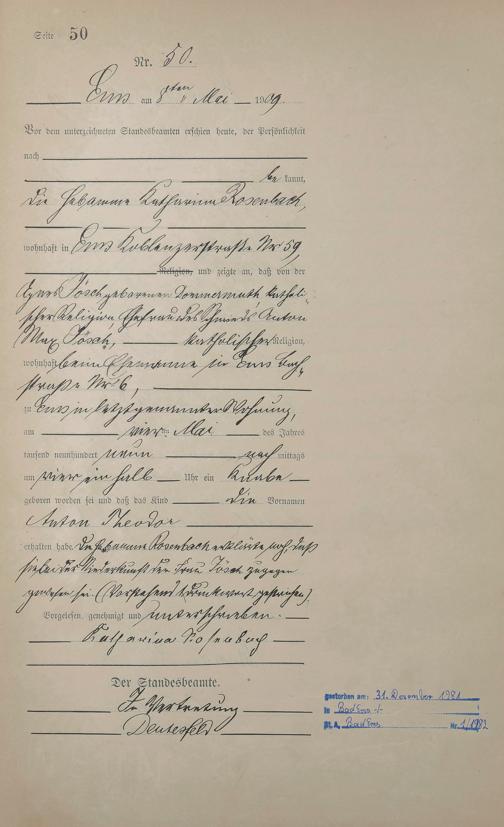 Seite 50
Nr. 50.
Ems am 8ten Mai 1909.
Vor dem unterzeichneten Standesbeamten erschien heute, der Persönlichkeit
nach
bekannt,
die Hebamme Katharina Rosenbach,
wohnhaft in Ems Koblenzerstraße Nr 59,
Religion, und zeigte an, daß von der
Agnes Jösch geborenen Donnermuth, katholi-
scher Religion, Ehefrau des Schmieds Anton
Max Jösch, katholischer Religion,
wohnhaft beim Ehemanne in Ems Bach-
straße Nr 6,
zu Ems in letztgenannter Wohnung,
am vierten Mai des Jahres
tausend neunhundert neun nachmittags
um vier ein halb Uhr ein Knabe
geboren worden sei und daß das Kind die Vornamen
Anton Theodor
erhalten habe. Die Hebamme Rosenbach erklärte noch, daß
sie bei der Niederkunft der Frau Jösch zugegen
gewesen sei. (Vorstehend 1 Druckwort gestrichen).
Vorgelesen, genehmigt und unterschrieben.
Katharina Rosenbach
Der Standesbeamte.
In Vertretung
gestorben am: 31. Dezember 1981
in Bad Ems
St. A. Bad Ems Nr. 1/1982